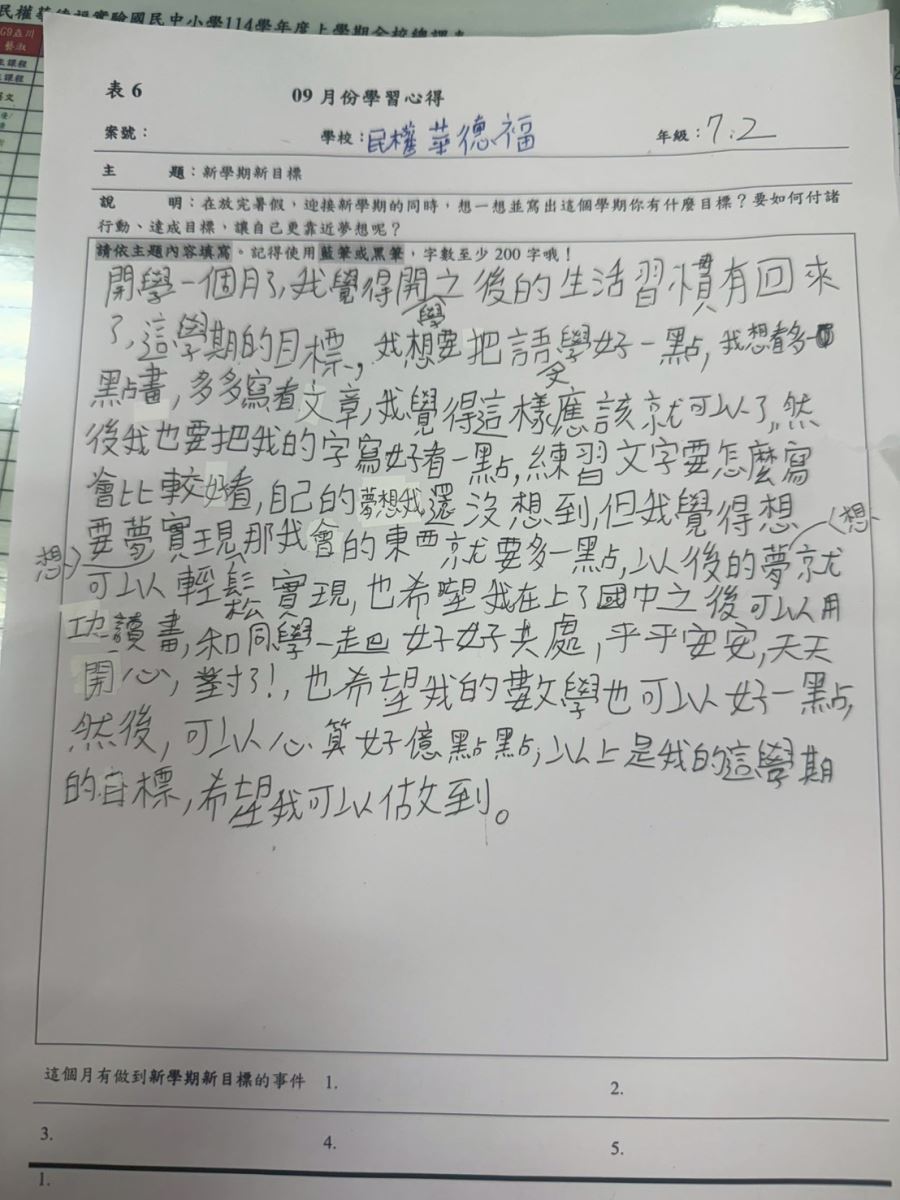 民權華德福實驗國民中小學114學年度上學期全校總課表
表 6
09 月份學習心得
案號：
學校：民權華德福
年級：7.2
主 題：新學期新目標
說 明：在放完暑假，迎接新學期的同時，想一想並寫出這個學期你有什麼目標？要如何付諸
行動、達成目標，讓自己更靠近夢想呢？
請依主題內容填寫。記得使用藍筆或黑筆，字數至少 200 字哦！
開學一個月了,我覺得開學之後的生活習慣有回來
了,這學期的目標,我想要把語文學好一點,我想看多一
點畫,多多寫看文章,我覺得這樣應該就可以了,然
後我也要把我的字寫好看一點,練習文字要怎麼寫
會比較好看,自己的夢想我還沒想到,但我覺得想
要夢想實現那我會的東西就要多一點,以後的夢想就
可以輕鬆松實現,也希望我在上了國中之後可以用
功讀畫,和同學一起好好共處,平平安安,天天
開心,對了!,也希望我的數學也可以好一點,
然後,可以心算好億點點,以上是我的這學期
的目標,希望我可以做到。
這個月有做到新學期新目標的事件 1.
2.
3.
4.
5.
1.